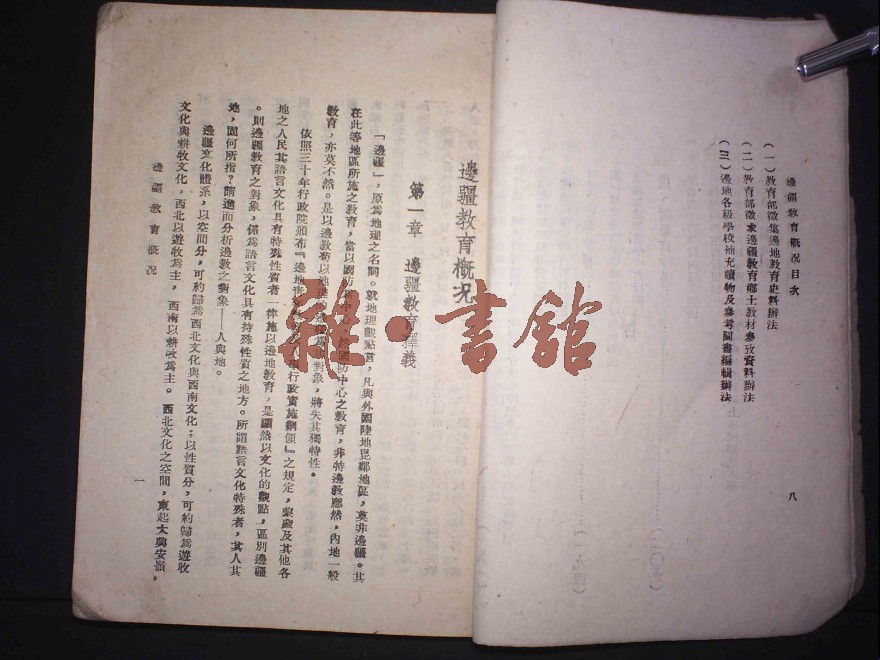 邊疆教育概況目次
(一)教育部徵集邊地教育史料辦法
(二)教育部徵求邊疆教育鄉土教材參攷資料辦法
(三)邊地各級學校補充讀物及參考圖書編輯辦法
八
邊疆教育概況
第一章 邊疆教育釋義
「邊疆」,原爲地理之名詞。就地理觀點言,凡與外國陸地毘鄰地區,莫非邊疆。其
在此等地區所施之教育,當以國防 中心,然國防中心之教育,非特邊教應然,內地一般
教育,亦莫不然。是以邊教苟以地理 對象,將失其獨特性。
依照三十年行政院頒布『邊地 行政實施綱領』之規定,蒙藏及其他各
地之人民其語言文化具有特殊性質者一律施以邊地教育,是顯然以文化的觀點,區別邊疆
。則邊疆教育之對象,係爲語言文化具有特殊性質之地方。所謂語言文化特殊者,其人其
地,固何所指?請進而分析邊教之對象——人與地。
邊疆文化體系,以空間分,可約歸爲西北文化與西南文化;以性質分,可約歸爲遊牧
文化與耕牧文化,西北以遊牧爲主,西南以耕牧爲主。西北文化之空間,東起大興安嶺,
邊疆教育概況
一
雜·書館